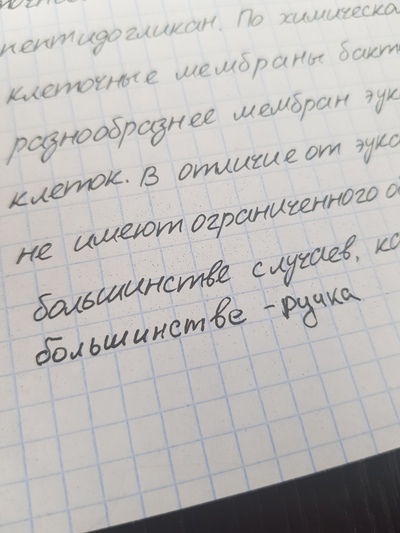 пептидогликан. По химическ
клеточные мембраны бакт
разнообразнее мембран эук
клеток. В отличие от эук
не имеют ограниченного о
большинстве случаев, ко
большинстве - ручка